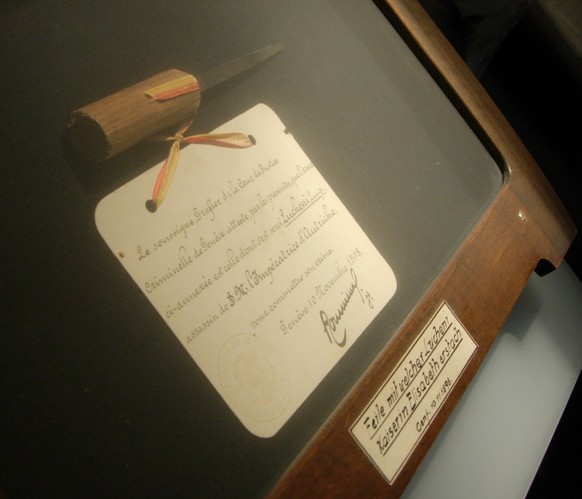 Le soussigné Greffier de la Cour de Justice
Criminelle de Genève atteste par les présentes que l'arme
ci-annexée est celle dont s'est servi Luccheni,
assassin de S. M. l'Impératrice d'Autriche,
pour commettre son crime.
Genève 10 Novembre 1898.
Feile mit welcher Lucheni
Kaiserin Elisabeth erstach
Genf. 10.11.1898